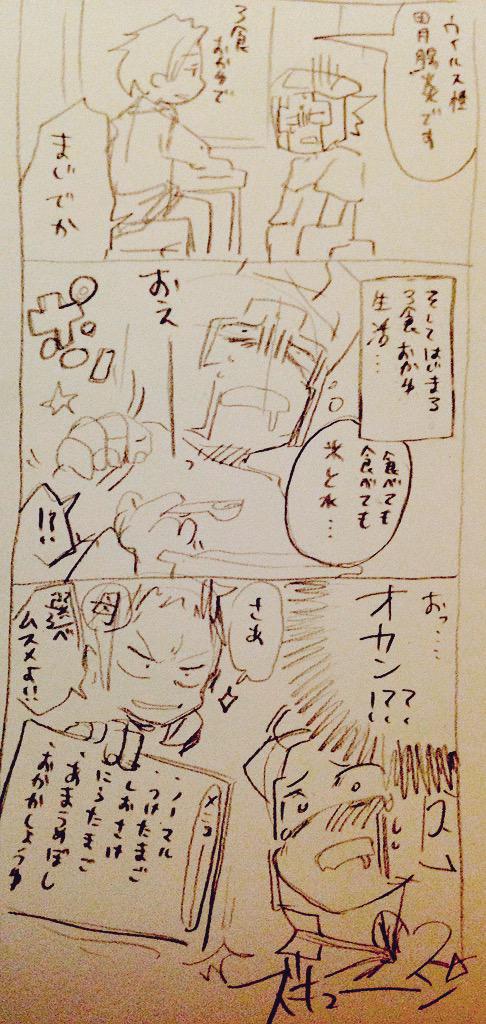 ウイルス性
胃腸炎です
3食
おかゆで
まじでか
そしてはじまる
3食おかゆ
生活…
おえ
食べても
食べても
米と水…
!?
おっ…
オカン!?
さあ
母
選べ
ムスメよ!!
メニュー
・ノーマル
・つけたまご
・しおさけ
・にらたまご
・あまうめぼし
・おかかしょうゆ
ズキューン